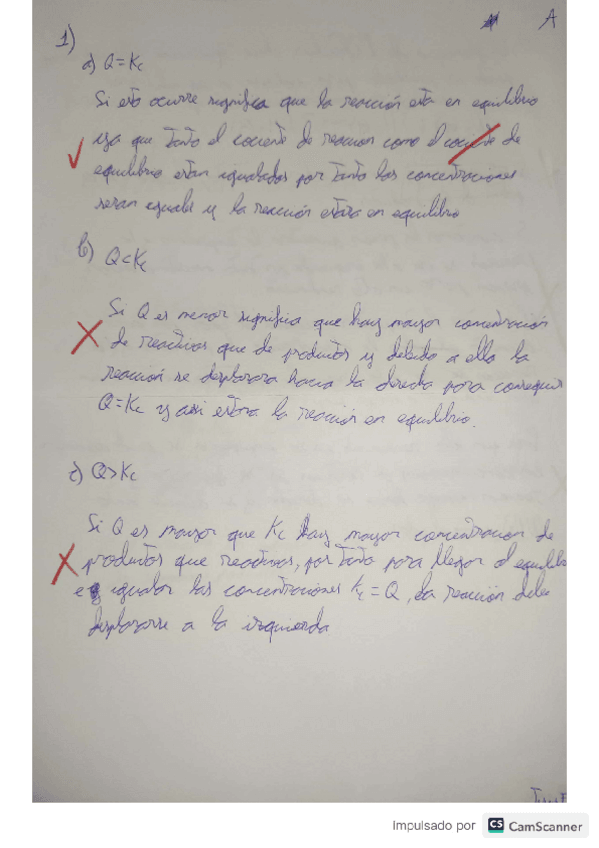 A
1)
a) Q = Kc
Si esto ocurre significa que la reacción esta en equilibrio
ya que tanto el cociente de reaccion como el cociente de
equilibrio estan igualados por tanto las concentraciones
seran equals y la reacción estara en equilibrio
b) Q < Kc
Si Q es menor significa que hay mayor concentración
de reactivos que de productos y debido a ello la
reacción se desplazara hacia la derecha para conseguir
Q = Kc y asi estara la reacción en equilibrio.
c) Q > Kc
Si Q es mayor que Kc hay mayor concentracion de
productos que reactivos, por tanto para llegar al equilib
e igualar las concentraciones Kc = Q, la reacción debe
desplazarse a la izquierda
Impulsado por CS CamScanner